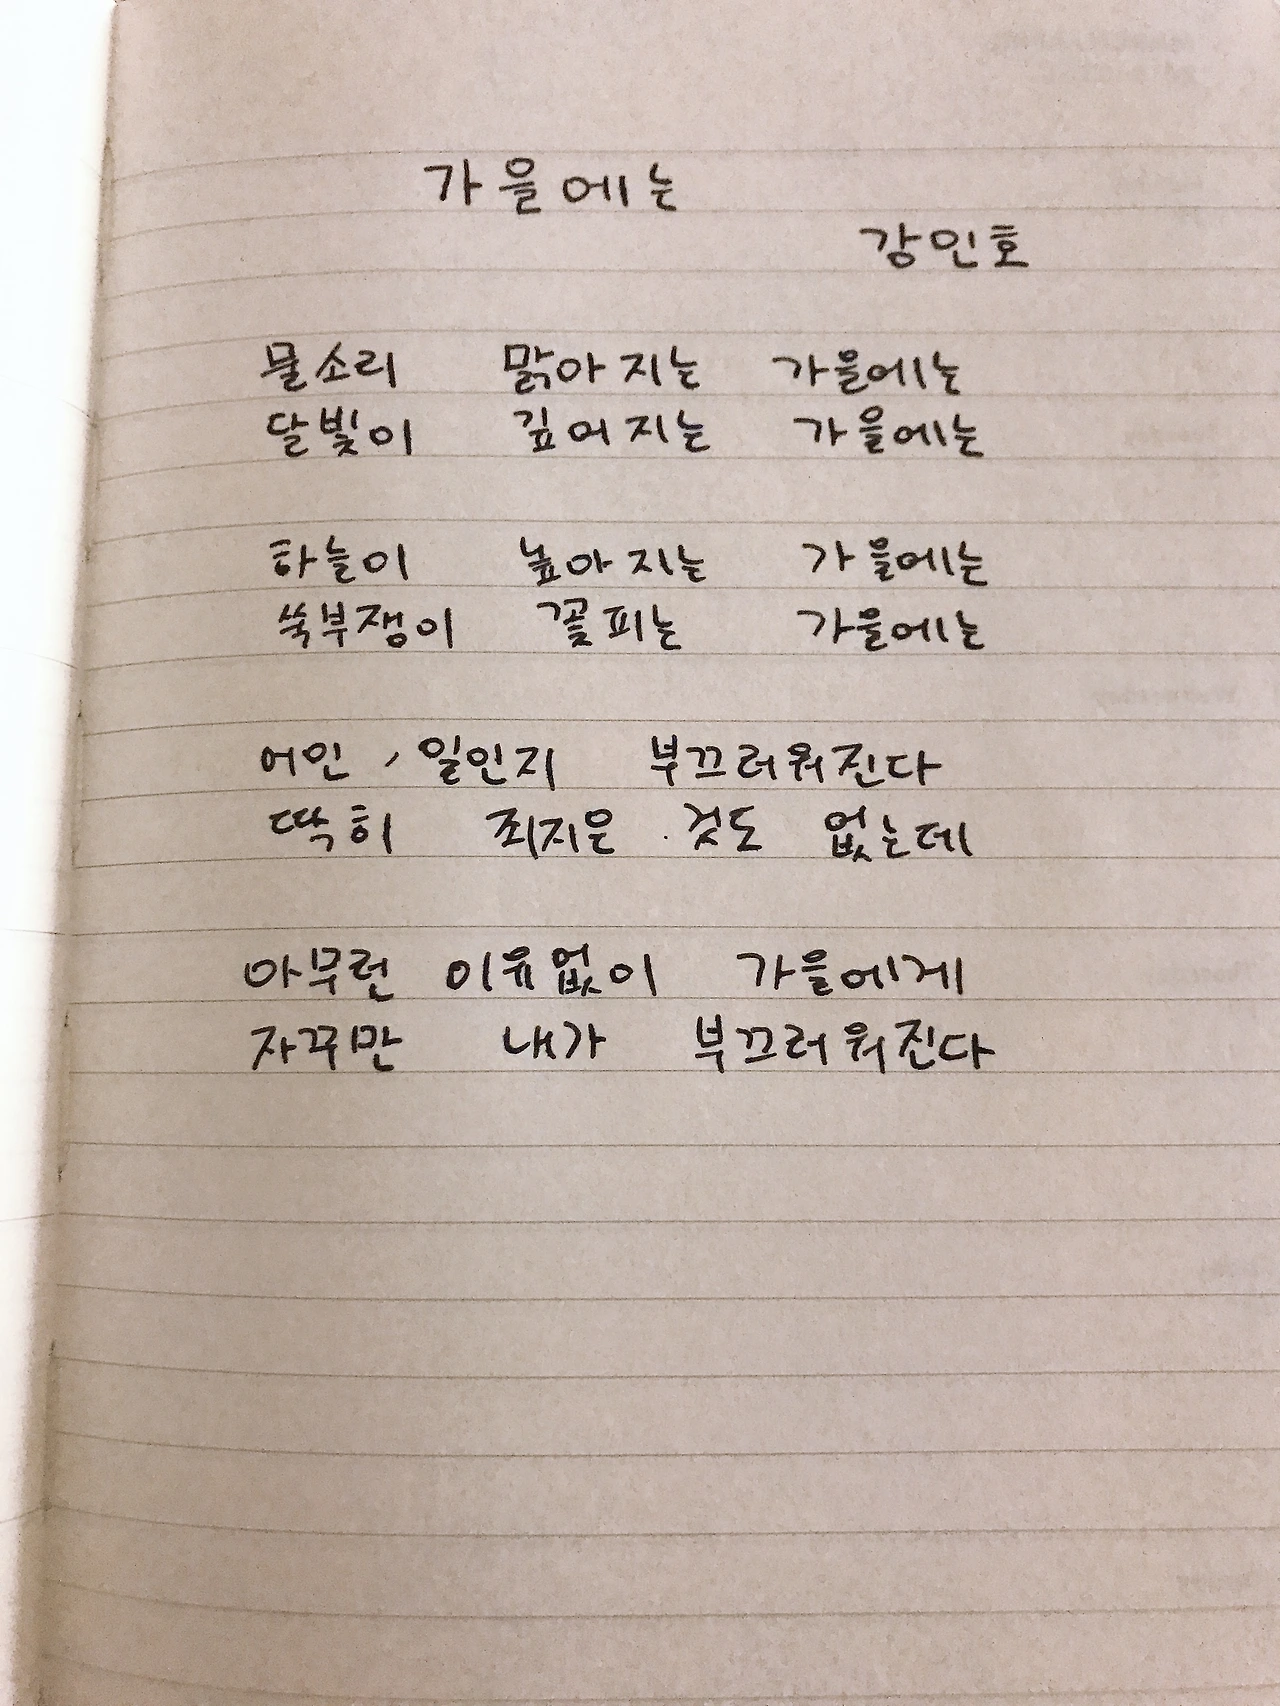 가을에는
강인호
물소리 맑아지는 가을에는
달빛이 깊어지는 가을에는
하늘이 높아지는 가을에는
쑥부쟁이 꽃피는 가을에는
어인 일인지 부끄러워진다
딱히 죄지은 것도 없는데
아무런 이유없이 가을에게
자꾸만 내가 부끄러워진다